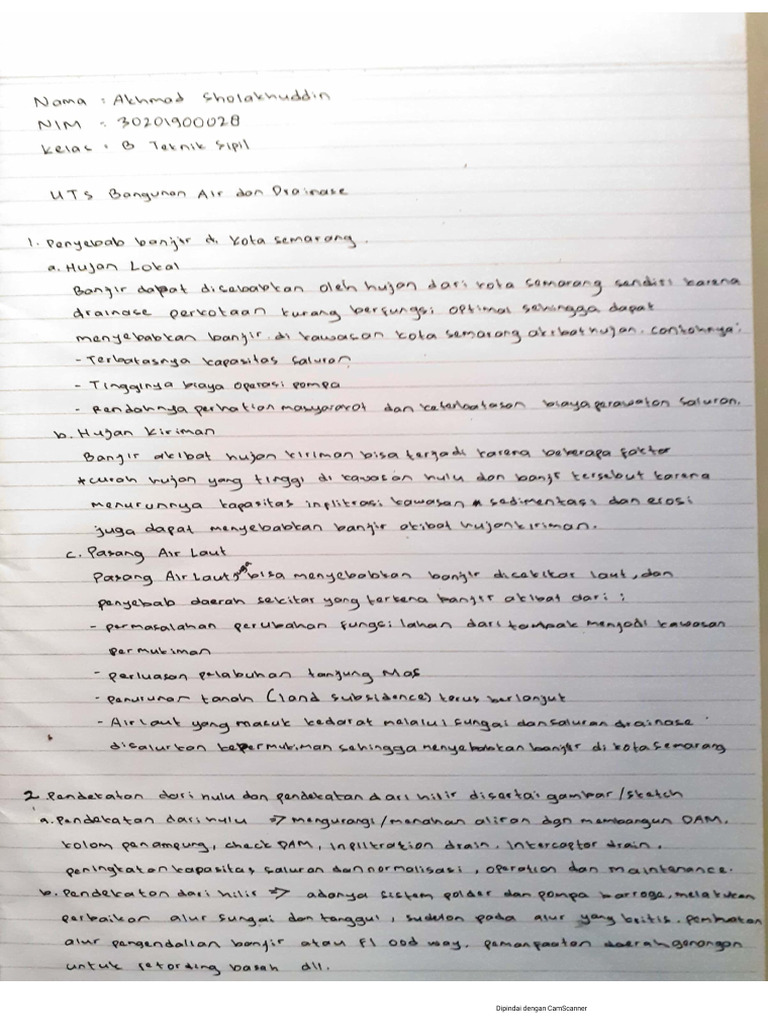 Nama : Akhmad Sholakhuddin
NIM : 30201900028
Kelas : B Teknik Sipil
UTS Bangunan Air dan Drainase
1. Penyebab banjir di Kota Semarang.
a. Hujan Lokal
Banjir dapat disebabkan oleh hujan dari kota semarang sendiri karena
drainase perkotaan kurang berfungsi optimal sehingga dapat
menyebabkan banjir di kawasan kota semarang akibat hujan. contohnya:
- Terbatasnya kapasitas saluran
- Tingginya biaya operasi pompa
- Rendahnya perhatian masyararot dan keterbatasan biaya perawatan saluran.
b. Hujan Kiriman
Banjir akibat hujan kiriman bisa terjadi karena beberapa faktor
*curah hujan yang tinggi di kawasan hulu dan banjir tersebut karena
menurunnya kapasitas inplitrasi kawasan sedimentasi dan erosi
juga dapat menyebabkan banjir akibat hujan kiriman.
c. Pasang Air Laut
Pasang Air Laut juga bisa menyebabkan banjir disekitar laut, dan
penyebab daerah sekitar yang terkena banjir akibat dari :
- permasalahan perubahan fungsi lahan dari tambak menjadi kawasan
permukiman
- perluasan pelabuhan tanjung Mas
- penurunan tanah (land subsidence) terus berlanjut
- Air Laut yang masuk kedarat melalui sungai dan saluran drainase
disalurkan kepermukiman sehingga menyebabkan banjir di kota semarang
2. Pendekatan dari hulu dan pendekatan dari hilir disertai gambar/sketch
a. Pendekatan dari hulu => mengurangi/menahan aliran dgn membangun DAM,
kolom penampung, check DAM, inpiltration drain, Interceptor drain.
peningkatan kapasitas saluran dan normalisasi, operation dan maintenance.
b. Pendekatan dari hilir => adanya sistem polder dan pompa barrage, melakukan
perbaikan alur sungai dan tanggul, sudetan pada alur yang kritis. pembuatan
alur pengendalian banjir atau flood way. pemanpaatan daerah genangan
untuk retarding basah dll.
Dipindai dengan CamScanner